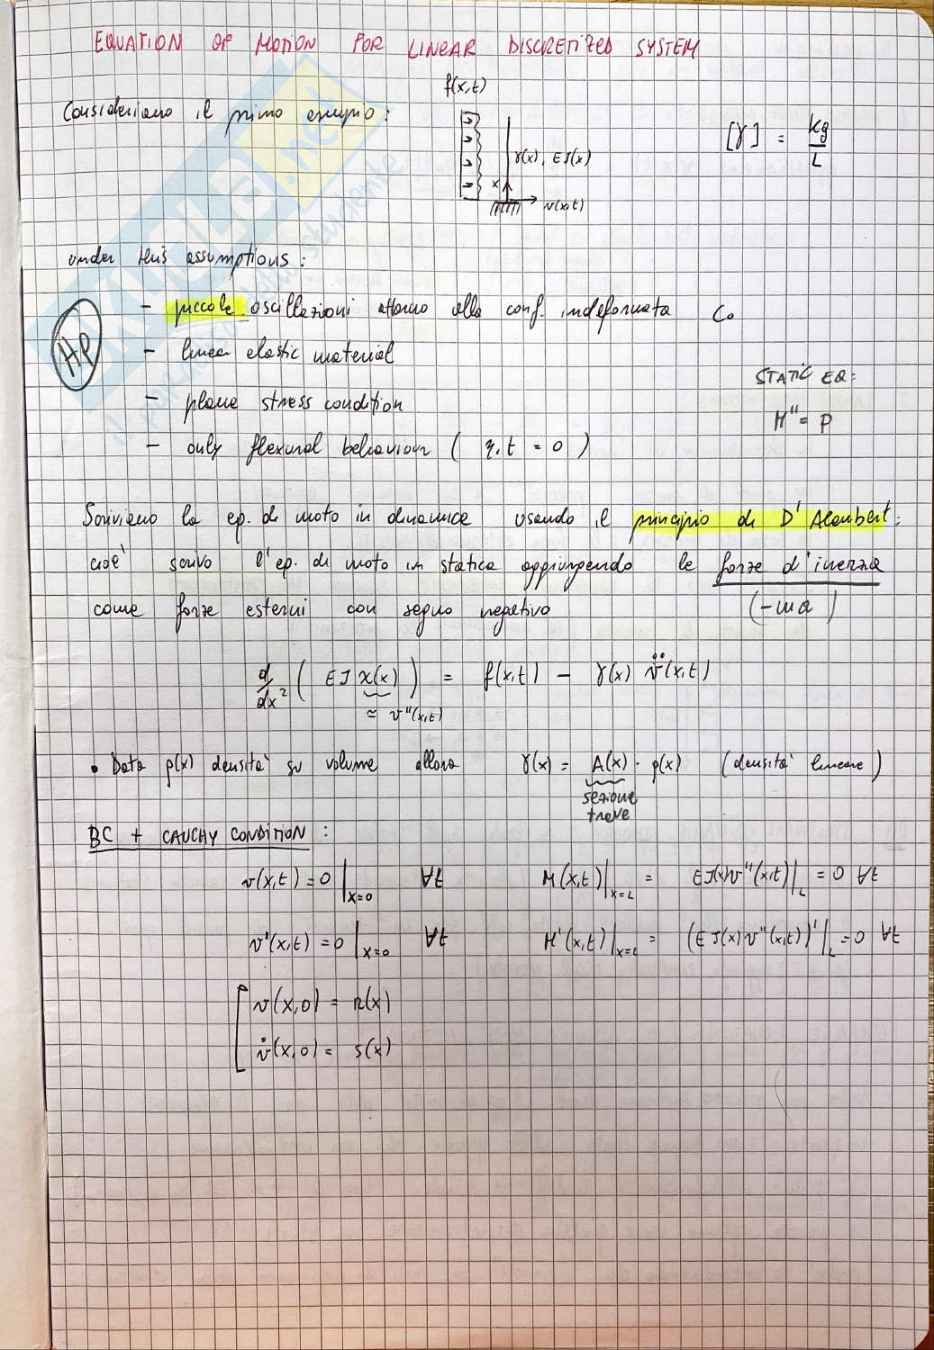 EQUATION OF MOTION FOR LINEAR DISCRETIZED SYSTEM
f(x,t)
Consideriamo il primo esempio:
[γ] = kg/L
γ(x), EJ(x)
x
v(x,t)
under this assumptions:
HP
- piccole oscillazioni attorno alla conf. indeformata C₀
- linear elastic material
- plane stress condition
- only flexural behaviour ( η,t = 0 )
STATIC EQ:
M'' = p
Scriviamo la eq. di moto in dinamica usando il principio di D'Alembert:
cioè scrivo l'eq. di moto in statica aggiungendo le forze d'inerzia
come forze esterni con segno negativo (-ma)
d/dx² ( EJ χ(x) ) = f(x,t) - γ(x) v̈(x,t)
≃ v''(x,t)
• Data ρ(x) densità su volume allora γ(x) = A(x) · ρ(x) (densità lineare)
sezione
trave
BC + CAUCHY CONDITION:
v(x,t) = 0 |x=0 ∀t M(x,t)|x=L = EJ(x)v''(x,t)|L = 0 ∀t
v'(x,t) = 0 |x=0 ∀t M'(x,t)|x=L = (EJ(x)v''(x,t))'|L = 0 ∀t
v(x,0) = r(x)
v̇(x,0) = s(x)